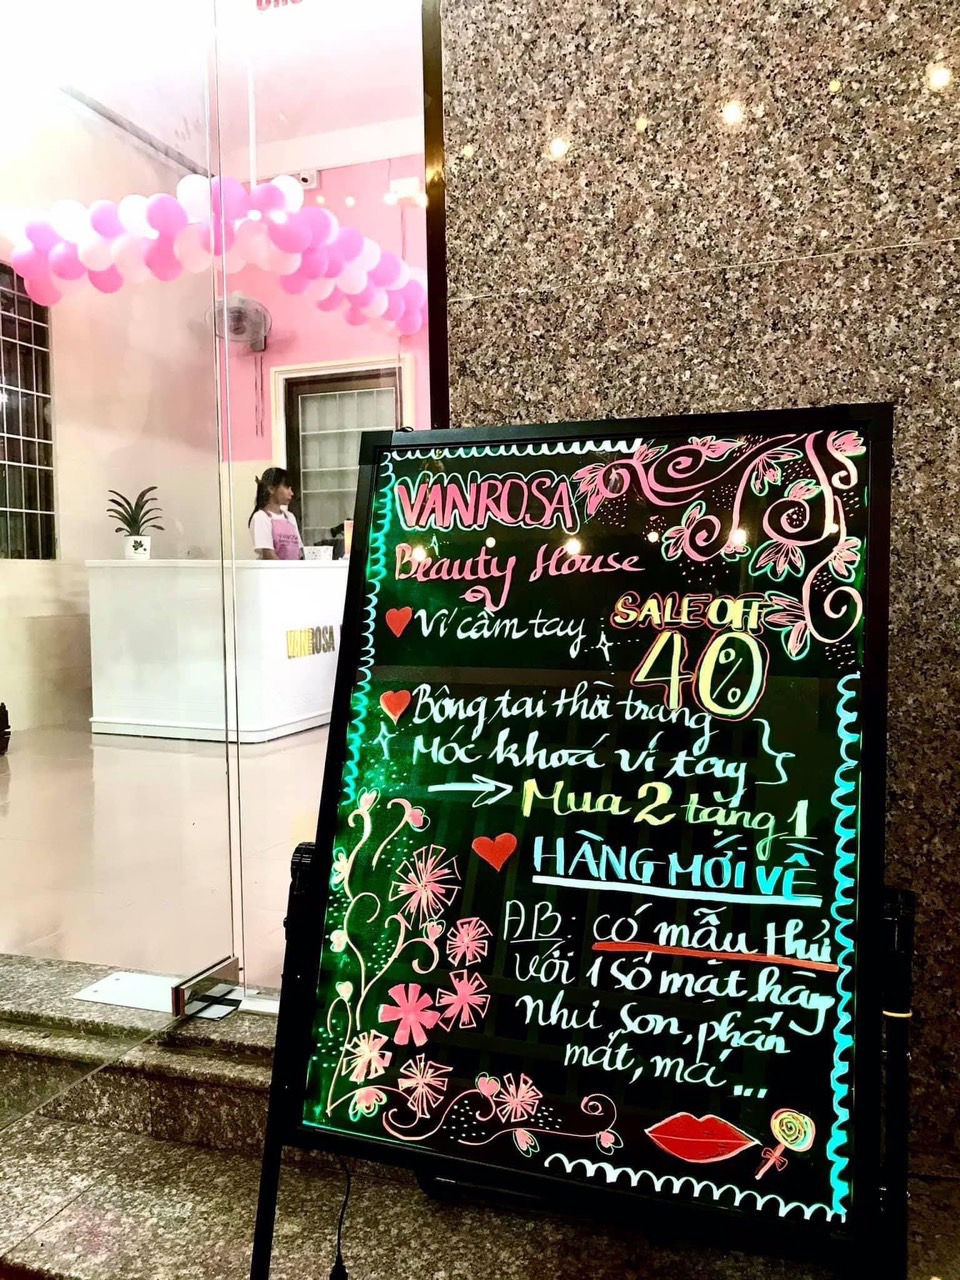 VANROSA
VANROSA
Beauty House
Ví cầm tay
SALE OFF
40%
Bông tai thời trang
Móc khoá ví tay
Mua 2 tặng 1
HÀNG MỚI VỀ
ĐB: có mẫu thử
với 1 số mặt hàng
như son, phấn
mắt, má ...